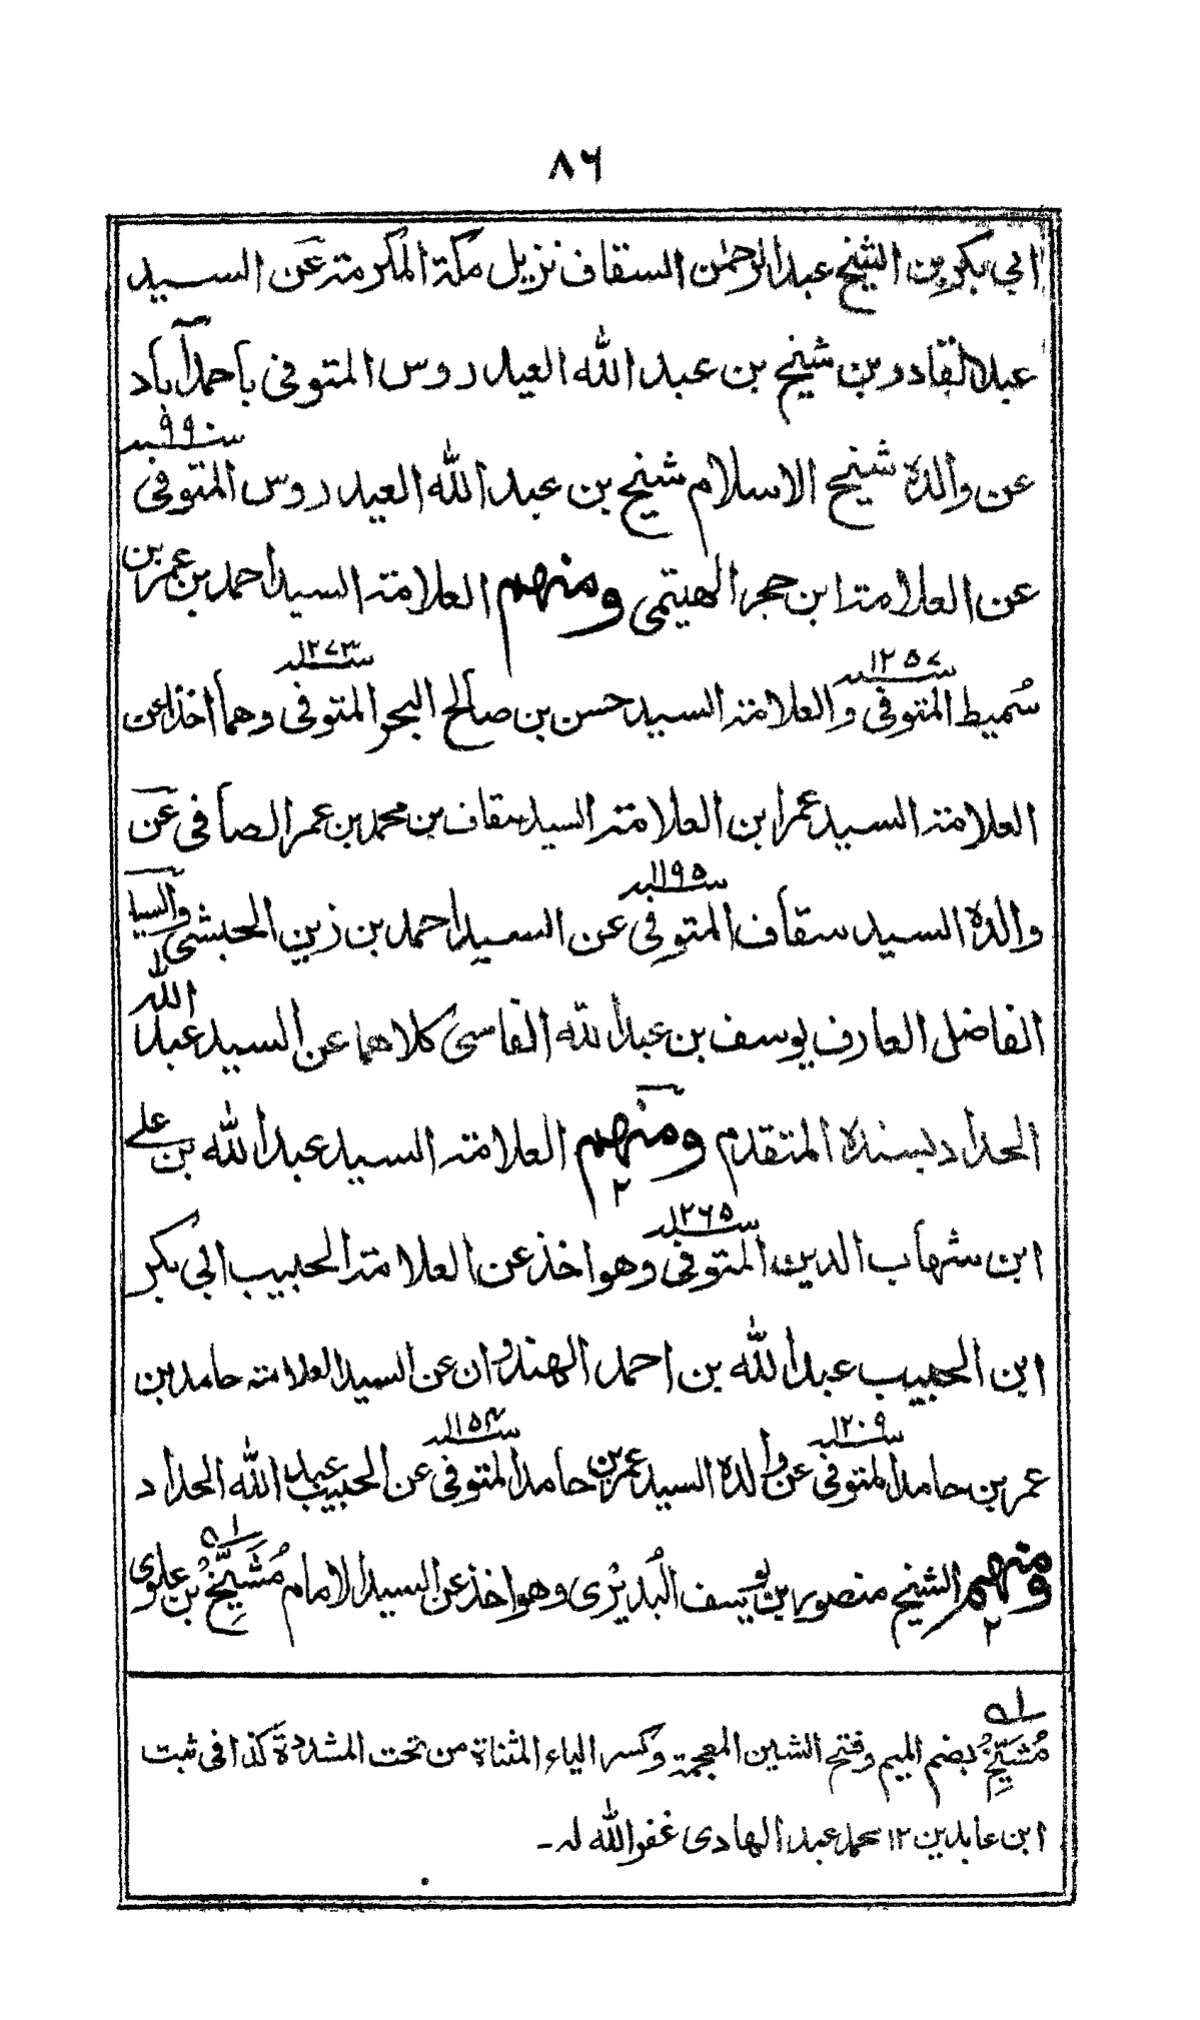 ٨٦
ابي بكر بن الشيخ عبد الرحمٰن السقاف نزيل مكة المكرمة عن السيد
عبد القادر بن شيخ بن عبد الله العيدروس المتوفى باحمدآباد
سنه ٩٩٠
عن والده شيخ الاسلام شيخ بن عبد الله العيدروس المتوفى
عن العلامة ابن حجر الهيتمي ومنهم العلامة السيد احمد بن عمر بن
سنه ١٢٥٧ سنه ١٢٧٣
سُميط المتوفى والعلامة السيد حسن بن صالح البحر المتوفى وهما أخذا عن
العلامة السيد عمر ابن العلامة السيد سقاف بن محمد بن عمر الصافي عن
سنه ١١٩٥
والده السيد سقاف المتوفى عن السيد احمد بن زين الحبشي والسيد
الفاضل العارف يوسف بن عبد الله الفاسي كلاهما عن السيد عبد الله
الحداد بسنده المتقدم ومنهم العلامة السيد عبد الله بن علي
٢
سنه ١٢٦٥
ابن شهاب الدين المتوفى وهو اخذ عن العلامة الحبيب ابي بكر
ابن الحبيب عبد الله بن احمد الهندوان عن السيد العلامة حامد بن
سنه ١٢٠٩ سنه ١١٥٤
عمر بن حامد المتوفى عن والده السيد عمر بن حامد المتوفى عن الحبيب عبد الله الحداد
ومنهم الشيخ منصور بن يوسف البُديْري وهو اخذ عن السيد الامام مُشَيِّخُ بن علوي
٢
مُشَيِّخُ بضم الميم وفتح الشين المعجمة وكسر الياء المثناة من تحت المشددة كذا في ثبت
ابن عابدين ١٢ محمد عبد الهادى غفر الله له ـ